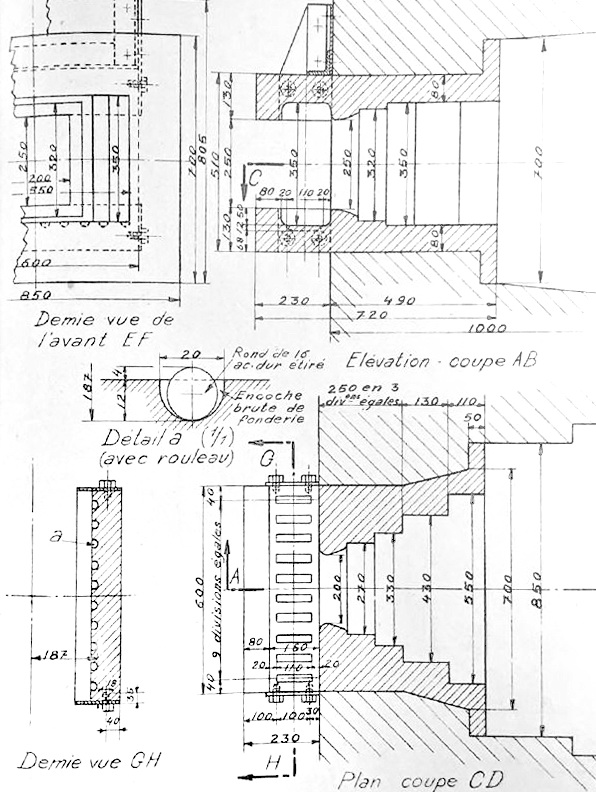 130
250
510
130
68
12
50
80
20
110
20
350
250
320
350
80
80
700
C
250
320
350
200
550
700
805
600
850
230
490
720
1000
Demie vue de
l'avant EF
Elévation - coupe AB
20
4
187
12
Rond de 16
ac.dur étiré
Encoche
brute de
fonderie
Détail a (1/1)
(avec rouleau)
250 en 3
div.ens égales
130
110
50
G
a
187
40
Demie vue GH
40
600
9 divisions égales
40
A
80
160
20
110
20
100
100
30
230
H
200
270
330
430
550
700
850
Plan coupe CD